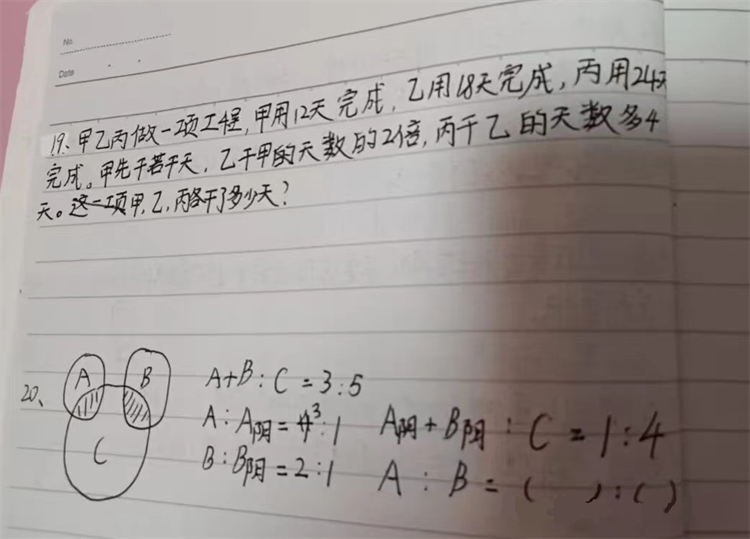 No.
Date
19、甲乙丙做一项工程,甲用12天完成,乙用18天完成,丙用24天
完成。甲先干若干天,乙干甲的天数的2倍,丙干乙的天数多4
天。这一项甲,乙,丙各干了多少天?
20、
A
B
C
A+B:C=3:5
A:A阴=3:1 A阴+B阴:C=1:4
B:B阴=2:1 A:B=( ):( )